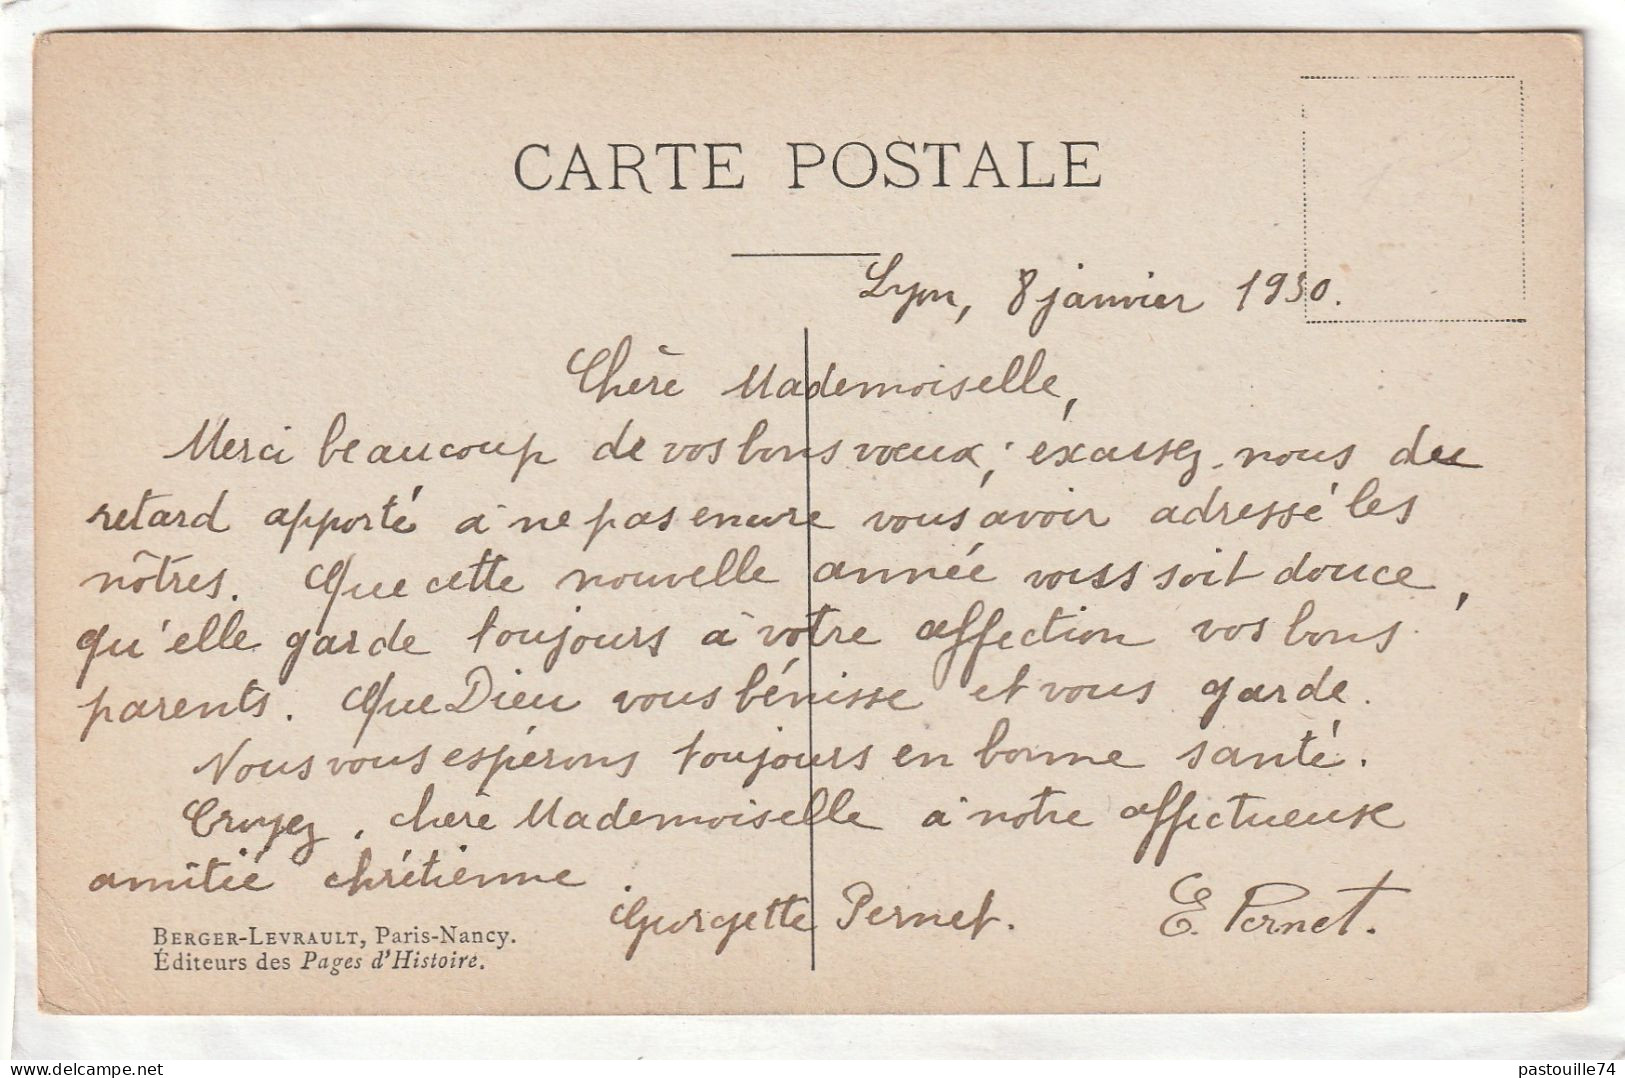 CARTE POSTALE
Lyon, 8 janvier 1930.
Chère Mademoiselle,
Merci beaucoup de vos bons vœux ; excusez-nous du
retard apporté à ne pas encore vous avoir adressé les
nôtres. Que cette nouvelle année vous soit douce,
qu'elle garde toujours à votre affection vos bons
parents. Que Dieu vous bénisse et vous garde.
Nous vous espérons toujours en bonne santé.
Croyez, chère Mademoiselle à notre affectueuse
amitié chrétienne.
Georgette Pernet. E. Pernet.
BERGER-LEVRAULT, Paris-Nancy.
Éditeurs des Pages d'Histoire.
delcampe.net
pastouille74